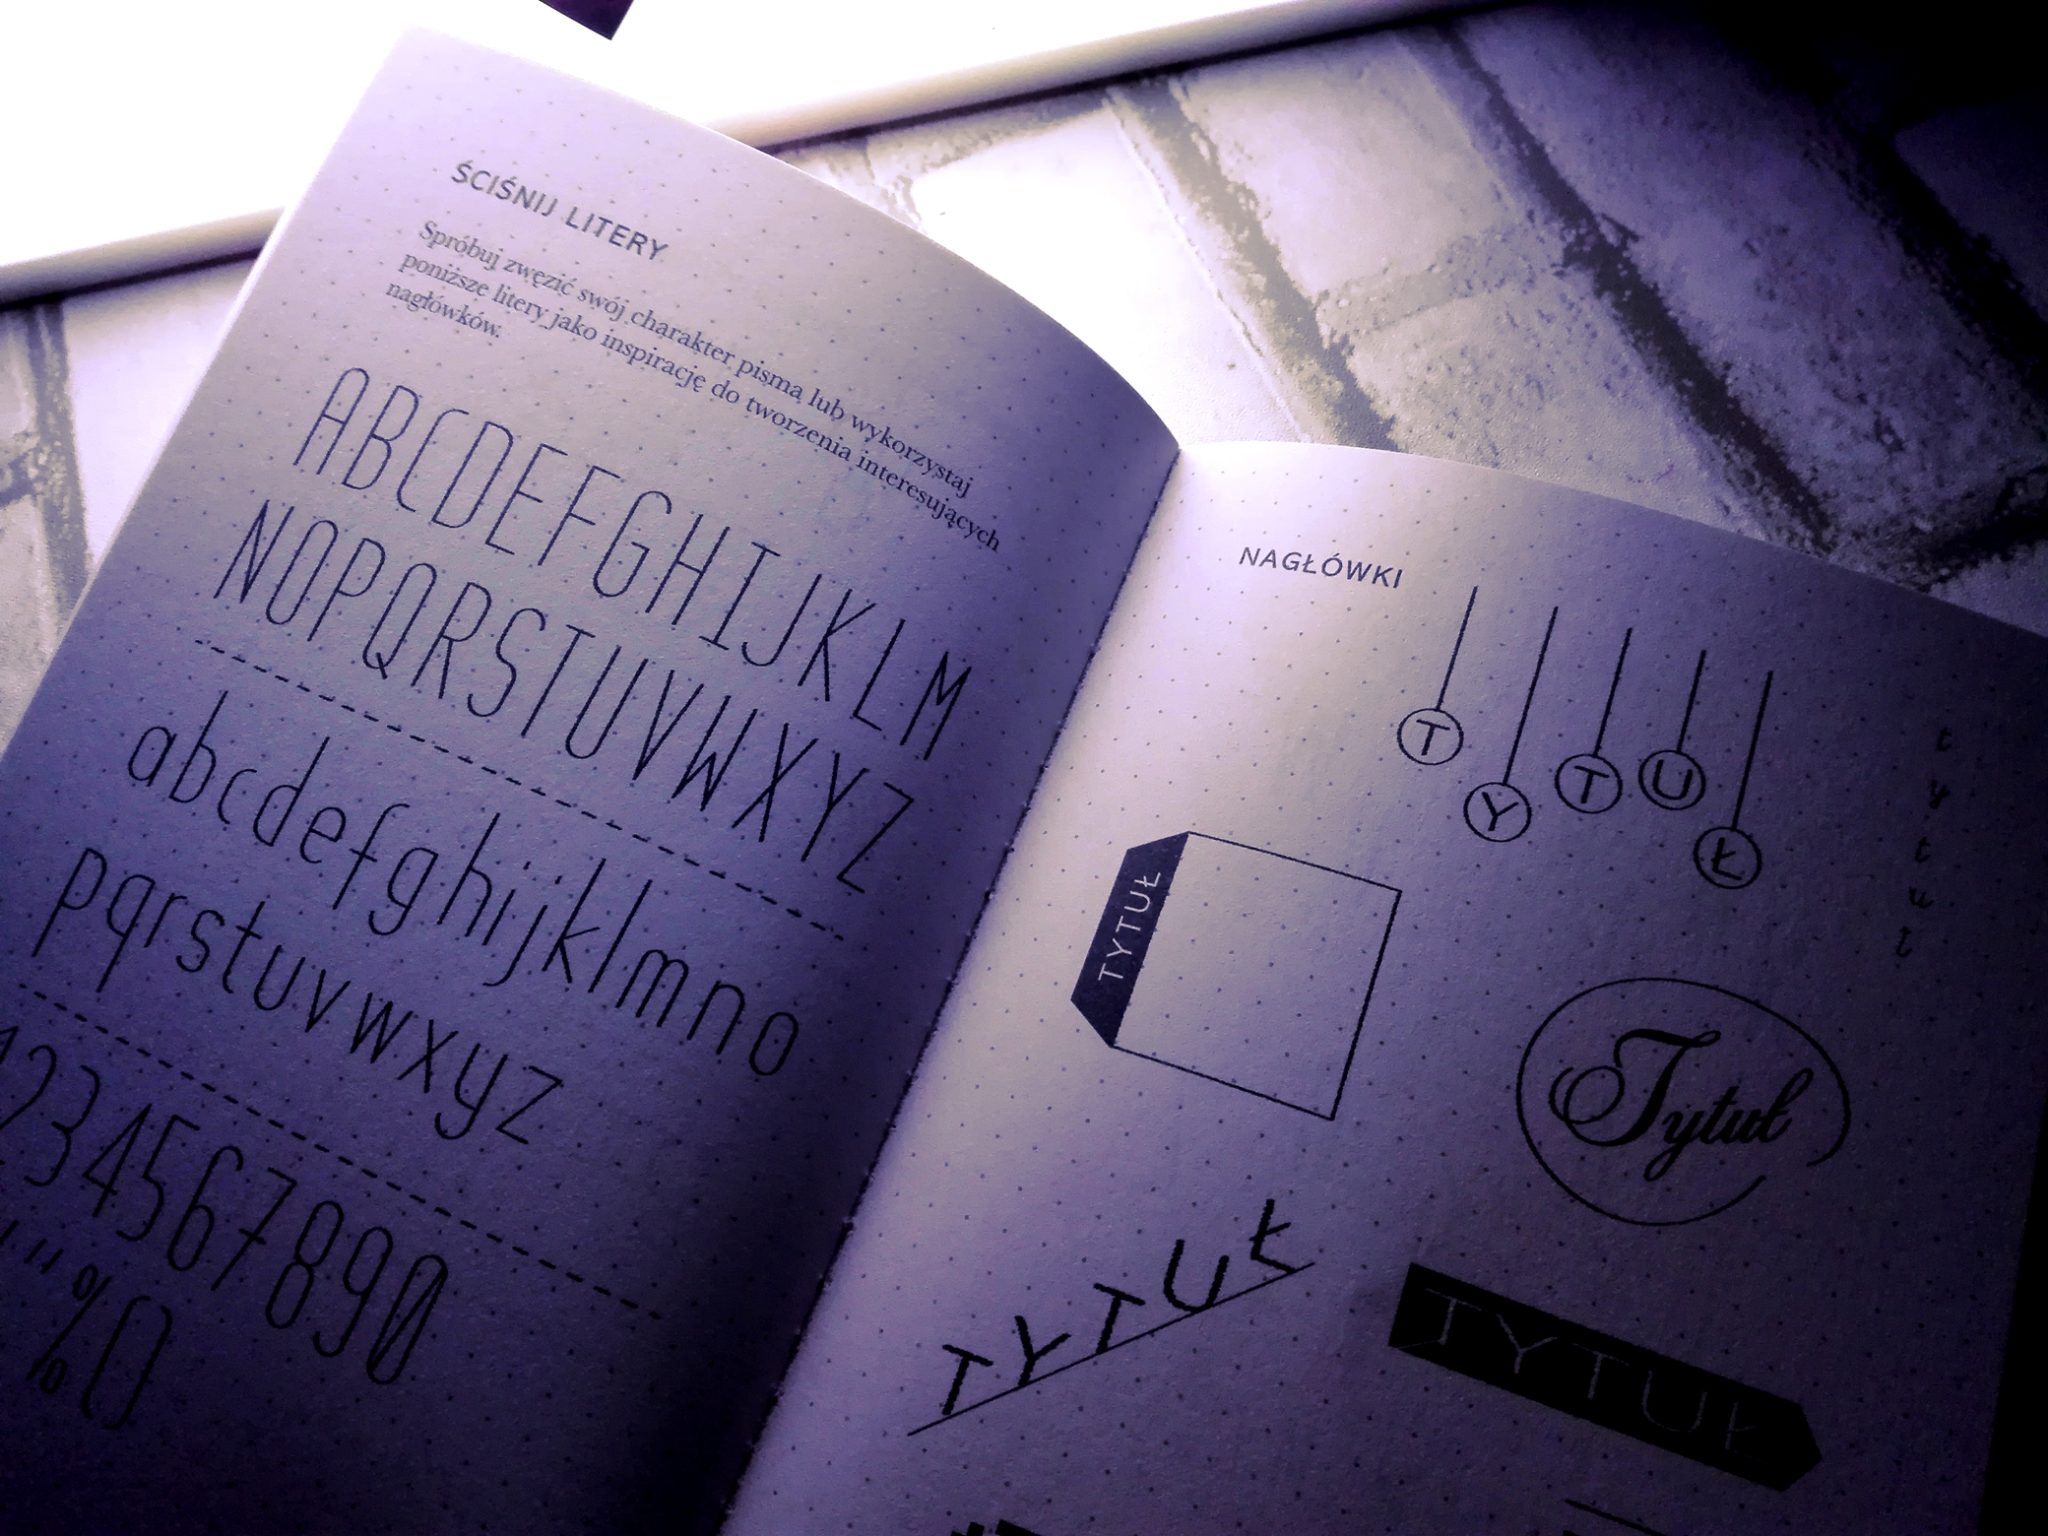 ŚCIŚNIJ LITERY
Spróbuj zwęzić swój charakter pisma lub wykorzystaj
poniższe litery jako inspirację do tworzenia interesujących
nagłówków.
ABCDEFGHIJKLM
NOPQRSTUVWXYZ
abcdefghijklmno
pqrstuvwxyz
1234567890
"%()
NAGŁÓWKI
TYTUŁ
tytuł
TYTUŁ
Tytuł
TYTUŁ
TYTUŁ